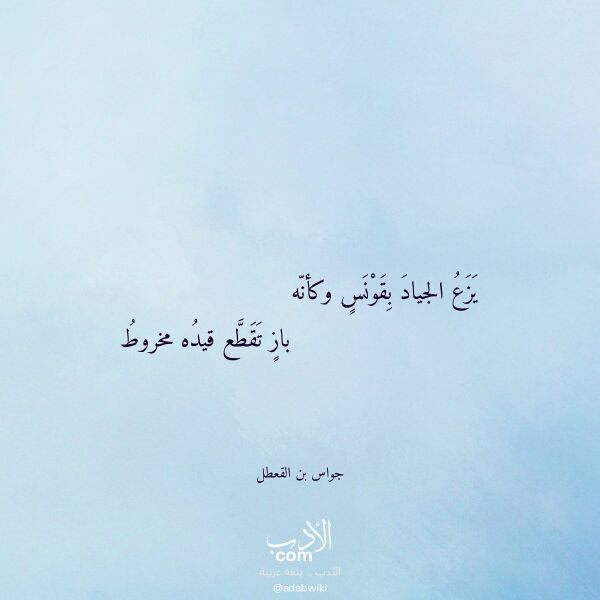 يَزَعُ الجيادَ بِقَوْنَسٍ وكأنّه
بازٍ تَقَطَّع قيدُه مخروطُ
جواس بن القعطل
الأدب
com
الأدب .. بلغة عربية
@adabwiki